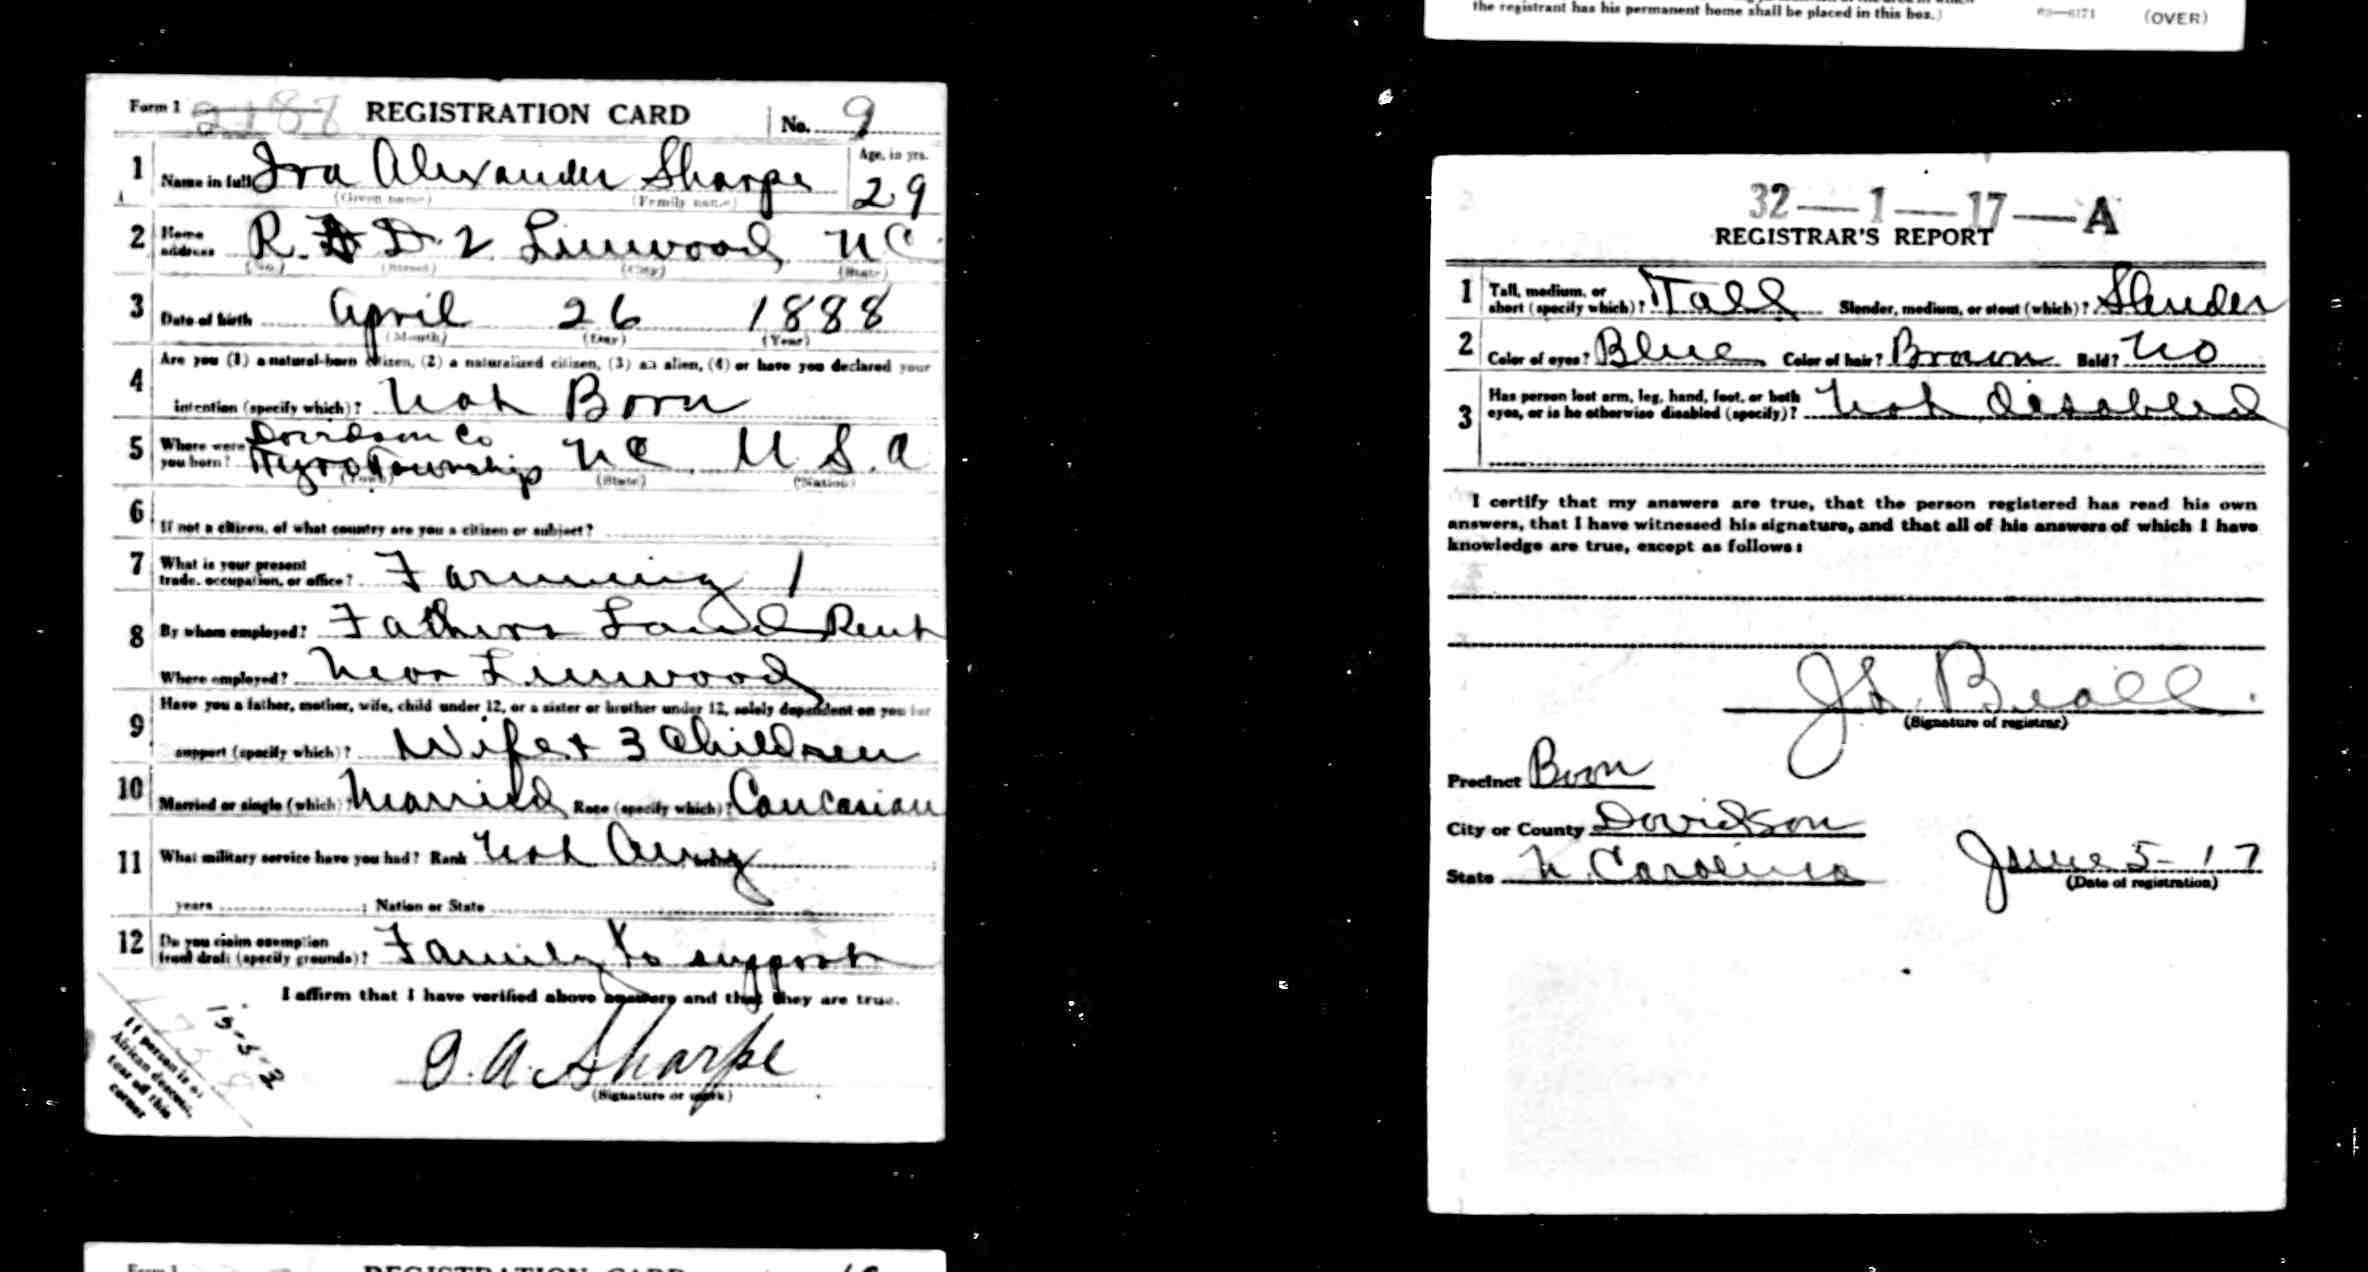 the registrant has his permanent home shall be placed in this box.) (OVER)
Form 1 2187 REGISTRATION CARD No. 9
1 Name in full Ira Alexander Sharpe Age, in yrs. 29
(Given name) (Family name)
2 Home address R. D. 2 Linwood N C
(No.) (Street) (City) (State)
3 Date of birth April 26 1888
(Month) (Day) (Year)
4 Are you (1) a natural-born citizen, (2) a naturalized citizen, (3) an alien, (4) or have you declared your
intention (specify which)? Nat Born
5 Where were you born? Davidson Co
Tyro Township N C U. S. A
(Town) (State) (Nation)
6 If not a citizen, of what country are you a citizen or subject?
7 What is your present trade, occupation, or office? Farming 1
8 By whom employed? Fathers Land Rent
Where employed? Near Linwood
9 Have you a father, mother, wife, child under 12, or a sister or brother under 12, solely dependent on you for
support (specify which)? Wife + 3 Children
10 Married or single (which)? Married Race (specify which)? Caucasian
11 What military service have you had? Rank Not Any
years ; Nation or State
12 Do you claim exemption from draft (specify grounds)? Family to support
I affirm that I have verified above answers and that they are true.
I. A. Sharpe
(Signature or mark)
If person is of African descent, tear off this corner
32—1—17—A
REGISTRAR'S REPORT
1 Tall, medium, or short (specify which)? Tall Slender, medium, or stout (which)? Slender
2 Color of eyes? Blue Color of hair? Brown Bald? No
3 Has person lost arm, leg, hand, foot, or both eyes, or is he otherwise disabled (specify)? Not disabled
I certify that my answers are true, that the person registered has read his own
answers, that I have witnessed his signature, and that all of his answers of which I have
knowledge are true, except as follows:
J. L. Beall
(Signature of registrar)
Precinct Boon
City or County Davidson
State N. Carolina June 5-17
(Date of registration)
Form 1 REGISTRATION CARD